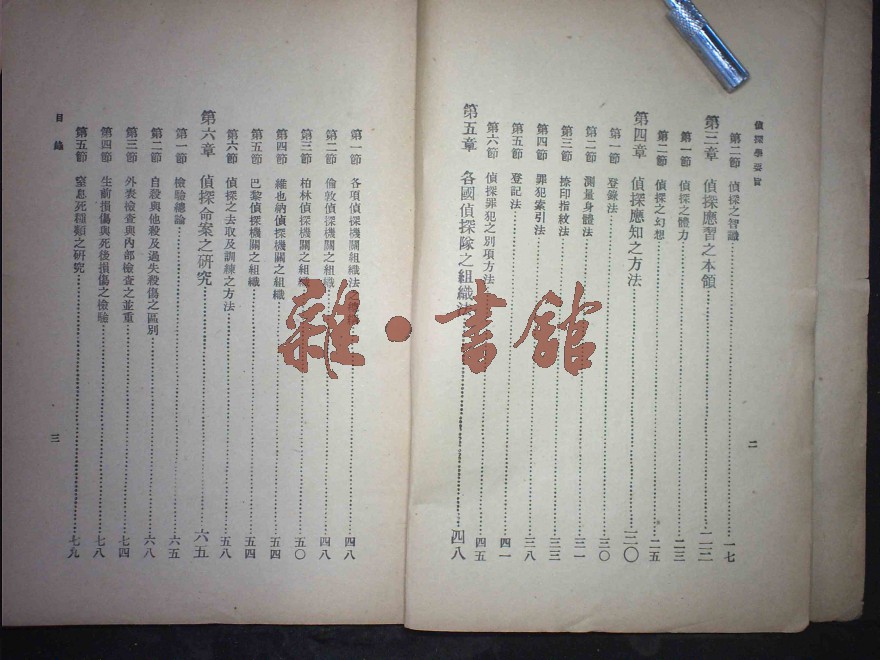 偵探學要旨
第二節 偵探之智識 一七
第三章 偵探應習之本領 二三
第一節 偵探之體力 二三
第二節 偵探之幻想 二五
第四章 偵探應知之方法 三〇
第一節 登錄法 三〇
第二節 測量身體法 三一
第三節 捺印指紋法 三三
第四節 罪犯索引法 三八
第五節 登記法 四一
第六節 偵探罪犯之別項方法 四五
第五章 各國偵探隊之組織法 四八
二
第一節 各項偵探機關組織法之 四八
第二節 倫敦偵探機關之組織 四八
第三節 柏林偵探機關之組織 五〇
第四節 維也納偵探機關之組織 五四
第五節 巴黎偵探機關之組織 五四
第六節 偵探之去取及訓練之方法 五八
第六章 偵探命案之研究 六五
第一節 檢驗總論 六五
第二節 自殺與他殺及過失殺傷之區別 六八
第三節 外表檢查與內部檢查之並重 七四
第四節 生前損傷與死後損傷之檢驗 七八
第五節 窒息死種類之研究 七九
目錄
三
雜·書館